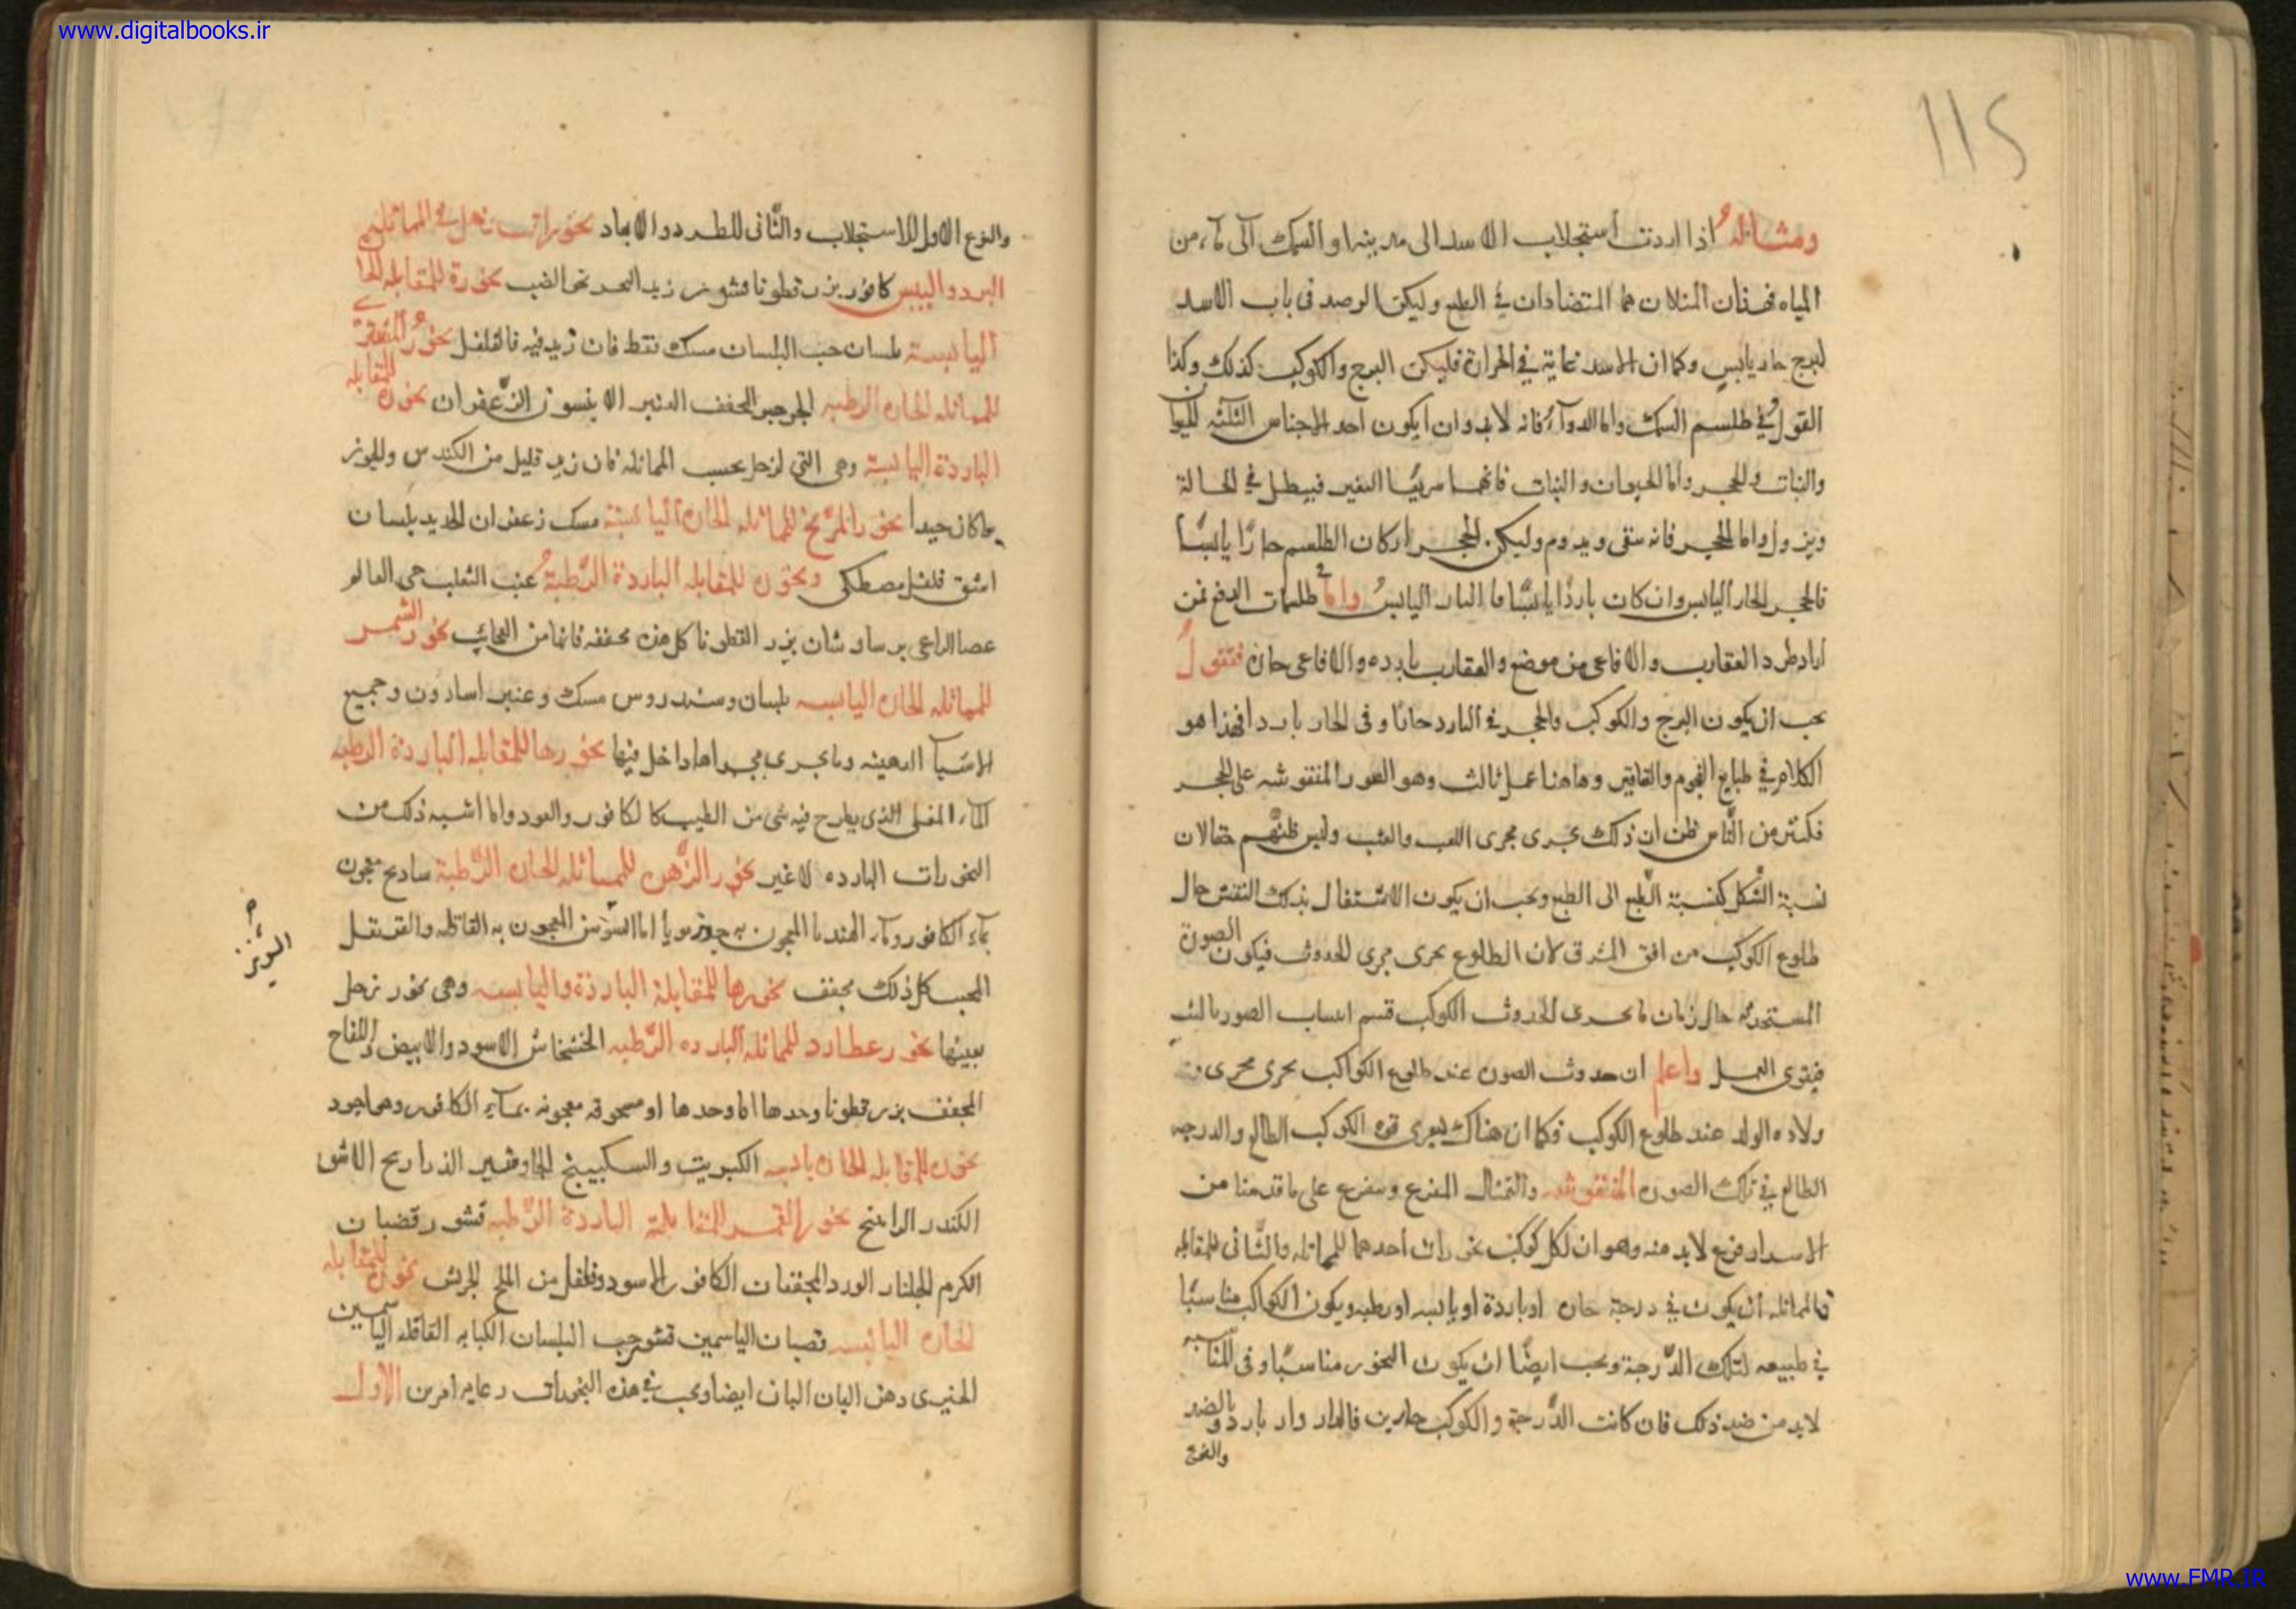 www.digitalbooks.ir
115
ومثاله اذا اردت استجلاب الاسد الى مدينة او السمك الى ماء من
المياه فهذان المثلان هما المتضادان في الطبع وليكن الرصد في باب الاسد
لبرج حار يابس وكما ان الاسد غاية في الحرارة فليكن البرج والكوكب كذلك وكذا
القول في طلسم السمك واما الدواء فانه لابد وان يكون احد الاجناس الثلثة الحيوان
والنبات والحجر واما الحيوان والنبات فانهما سريعا التغير فيبطل في الحالة
ويزول واما الحجر فانه يبقى ويدوم وليكن الحجر ان كان الطلسم حارا يابسا
فالحجر الحار اليابس وان كان باردا يابسا فالبارد اليابس واما في طلسمات الدفع فمن
اراد طرد العقارب والافاعي من موضع والعقارب باردة والافاعي حارة فنقول
يجب ان يكون البرج والكوكب والحجر في البارد حارا وفي الحار باردا فهذا هو
الكلام في طبايع النجوم والعقاقير وهاهنا عمل ثالث وهو الصور المنقوشة على الحجر
فكثير من الناس ظن ان ذلك يجرى مجرى اللعب والعبث وليس ظنهم حقا لان
نسبة الشكل كنسبة الطبع الى الطبع ويجب ان يكون الاشتغال بذلك النقش حال
طلوع الكوكب من افق المشرق لان الطلوع يجرى مجرى الحدوث فيكون الصورة
المستحدثة حال زمان ما يجرى الحدوث الكوكب
فيقوى العمل واعلم ان حدوث الصورة عند طلوع الكواكب يجرى مجرى
ولادة الولد عند طلوع الكوكب فكما ان هناك يسرى قوة الكوكب الطالع والدرجة
الطالع في تلك الصورة المنقوشة والتمثال المفرغ وسنفرع على ما قدمنا من
الاسرار فرع لابد منه وهو ان لكل كوكب بخورات احدهما للمماثلة والثاني للمقابلة
فالمماثلة ان يكون في درجة حارة او باردة او يابسة او رطبة ويكون الكواكب مناسبا
في طبيعه لتلك الدرجة ويجب ايضا ان يكون البخور مناسبا وفي المناسبة
لابد من ضد ذلك فان كانت الدرجة والكوكب حارين فالدار وار بارد وبالضد
والنوع
والنوع الاول للاستجلاب والثاني للطرد والابعاد بخورات زحل في المماثلة
البرد واليبس كافور بزر قطونا قشور زبد البحر بخورة للمقابلة الحارة
اليابسة بلسان حب البلسان مسك فقط فان زيد فيه فالفلفل بخور المشترى
للمماثلة الحارة الرطبة الجرجير المجفف العنبر الانيسون الزعفران بخوره للمقابلة
الباردة اليابسة وهى التي لزحل بحسب المماثلة فان زيد قليل من الكندس والجوز
ما كان جيدا بخور المريخ للمماثلة الحارة اليابسة مسك زعفران الحديد بلسان
اشق فلفل مصطكى وبخوره للمقابلة الباردة الرطبة عنب الثعلب حى العالم
عصا الراعى برساوشان بزر القطونا كل هذه مجففة فانها من العجائب بخور الشمس
للمماثلة الحارة اليابسة بلسان وسندروس مسك وعنبر اسارون وجميع
الاشياء الدهنية وما يجرى مجراها داخل فيها بخورها للمقابلة الباردة الرطبة
الماء المغلى الذى يطرح فيه شى من الطيب كالكافور والعود وما اشبه ذلك من
البخورات الباردة لا غير بخور الزهرة للمماثلة الحارة الرطبة سادج معجون
بماء الكافور وماء الهندبا المعجون به جوز بويا اما السوسن المعجون به القاقلة والقرنفل
المحبب كل ذلك مجفف بخورها للمقابلة الباردة واليابسة وهى بخور زحل
بعينها بخور عطارد للمماثلة الباردة الرطبة الخشخاش الاسود والابيض واللفاح
المجفف بزر قطونا وحدها اما وحدها او مسحوقة معجونة بماء الكافور وهو اجود
بخوره للمقابلة الحارة يابسة الكبريت والسكبينج الجاوشير الذراريح الاشق
الكندر الراينج بخور القمر للمقابلة الباردة الرطبة قشور قضبان
الكرم الجلنار الورد المجففات الكافور الاسود وفلفل من الملح الجريش بخوره للمقابلة
الحارة اليابسة قضبان الياسمين قشور حب البلسان الكبابه القاقلة الياسمين
الخيرى دهن البان البان ايضا ويجب في هذه البخورات رعاية امرين الاول
www.FMR.IR